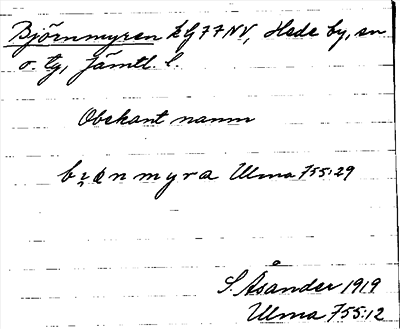 Björnmyren k G 77 NV, Hede by, sn
o. tg, Jämtl. l.
Obekant namn
bjœnmyra Ulma 755:29
S. Åsander 1919
Ulma 755:12